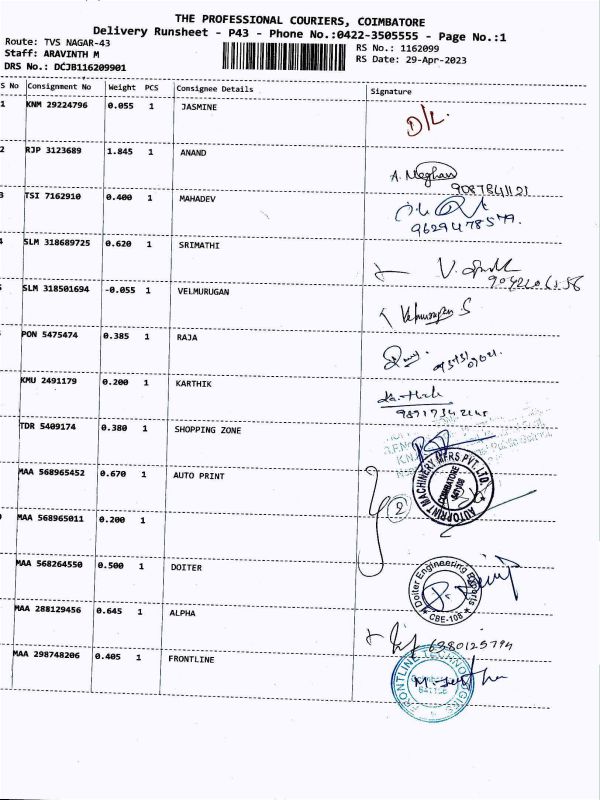 THE PROFESSIONAL COURIERS, COIMBATORE
Delivery Runsheet - P43 - Phone No.:0422-3505555 - Page No.:1
Route: TVS NAGAR-43
RS No.: 1162099
Staff: ARAVINTH M
RS Date: 29-Apr-2023
DRS No.: DCJB116209901
S No Consignment No Weight PCS Consignee Details Signature
1 KNM 29224796 0.055 1 JASMINE D/L.
2 RJP 3123689 1.845 1 ANAND A. Meghan
9087841121
3 TSI 7162910 0.400 1 MAHADEV
9629478579.
4 SLM 318689725 0.620 1 SRIMATHI V.
SLM 318501694 -0.055 1 VELMURUGAN Velmurugan S
PON 5475474 0.385 1 RAJA
KMU 2491179 0.200 1 KARTHIK Karthik
TDR 5409174 0.380 1 SHOPPING ZONE
MAA 568965452 0.670 1 AUTO PRINT 2
AUTOPRINT MACHINERY MFRS PVT. LTD.
COIMBATORE
MAA 568965011 0.200 1
MAA 568264550 0.500 1 DOITER
Doiter Engineering Exports
CBE-106
MAA 288129456 0.645 1 ALPHA 6380125794
MAA 298748206 0.405 1 FRONTLINE
FRONTLINE TECHNOLOGIES